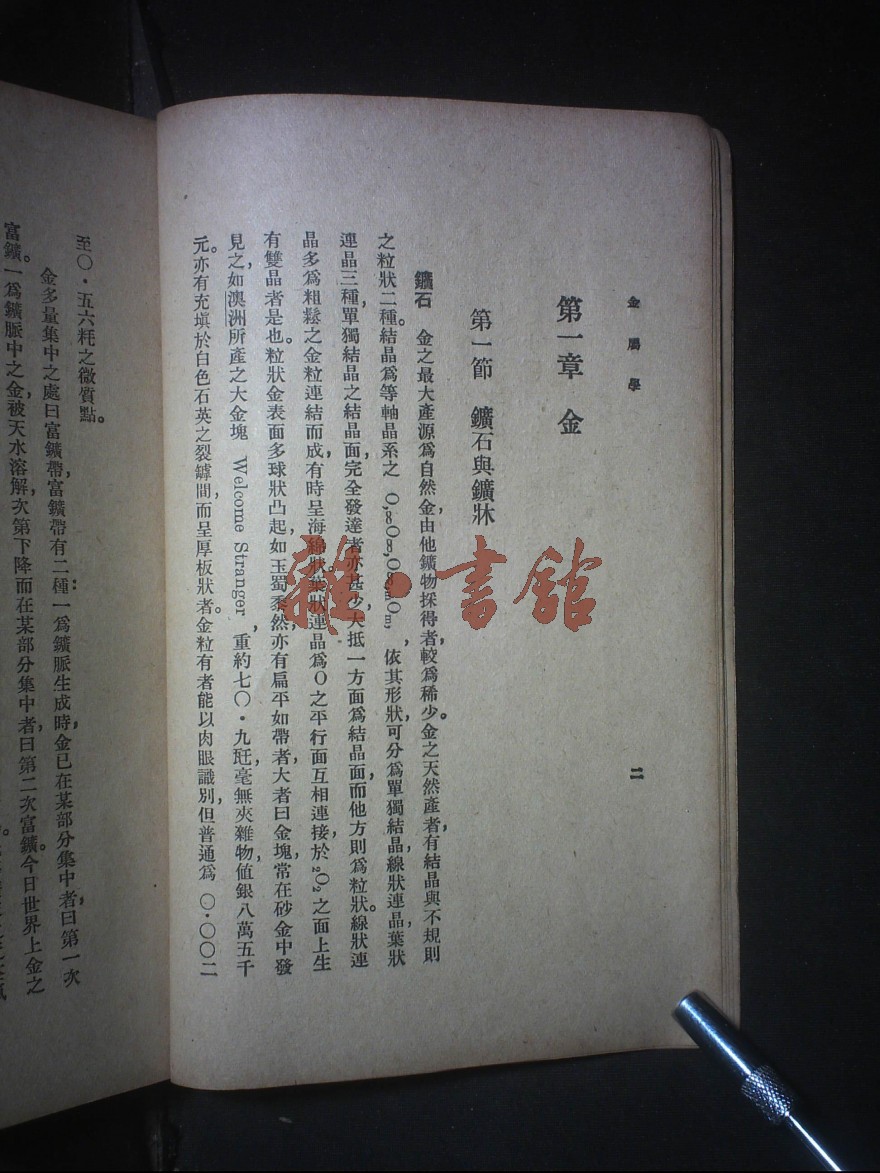 金屬學
二
第一章 金
第一節 鑛石與鑛牀
鑛石 金之最大產源爲自然金,由他鑛物採得者,較爲稀少。金之天然產者,有結晶與不規則
之粒狀二種。結晶爲等軸晶系之 依其形狀,可分爲單獨結晶,線狀連晶,葉狀
連晶三種,單獨結晶之結晶面,完全發達者亦甚少,大抵一方面爲結晶面,而他方則爲粒狀。線狀連
晶多爲粗鬆之金粒連結而成,有時呈海綿狀。葉狀連晶爲O之平行面互相連接,於₂O₂之面上生
有雙晶者是也。粒狀金表面多球狀凸起,如玉蜀黍然,亦有扁平如帶者,大者曰金塊,常在砂金中發
見之,如澳洲所產之大金塊 Welcome Stranger,重約七〇・九瓩,毫無夾雜物,値銀八萬五千
元。亦有充塡於白色石英之裂罅間,而呈厚板狀者。金粒有者能以肉眼識別,但普通爲〇・〇〇二
至〇・五六粍之微質點。
金多量集中之處曰富鑛帶,富鑛帶有二種:一爲鑛脈生成時,金已在某部分集中者,曰第一次
富鑛。一爲鑛脈中之金,被天水溶解,次第下降,而在某部分集中者,曰第二次富鑛。今日世界上金之
雜・書館